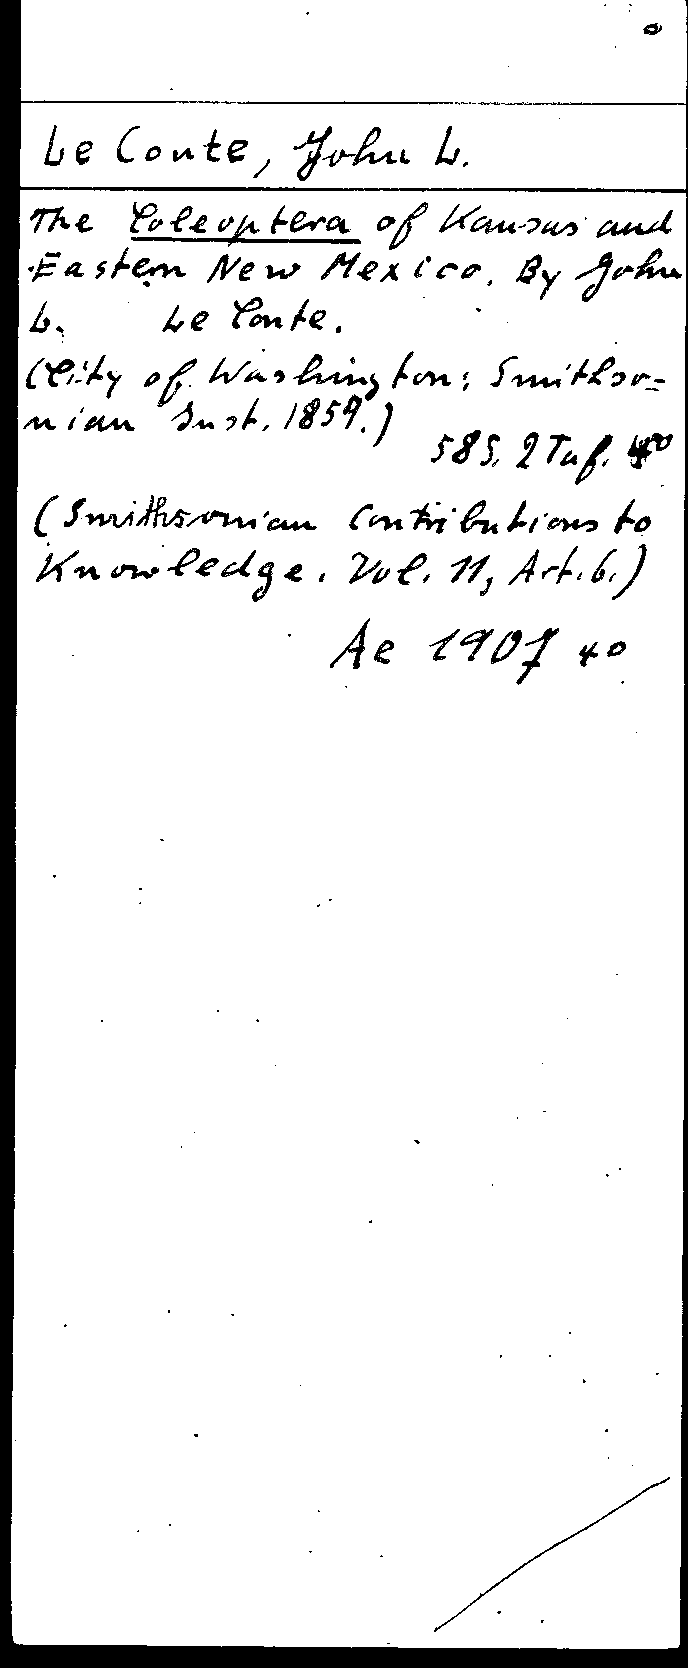 Le Conte, John L.
The Coleoptera of Kansas and
Eastern New Mexico. By John
L. Le Conte.
(City of Washington: Smithso=
nian Inst. 1859.)
58 S. 2 Taf. 4°
(Smithsonian Contributions to
Knowledge. Vol. 11, Art. 6.)
Ae 1907 4o